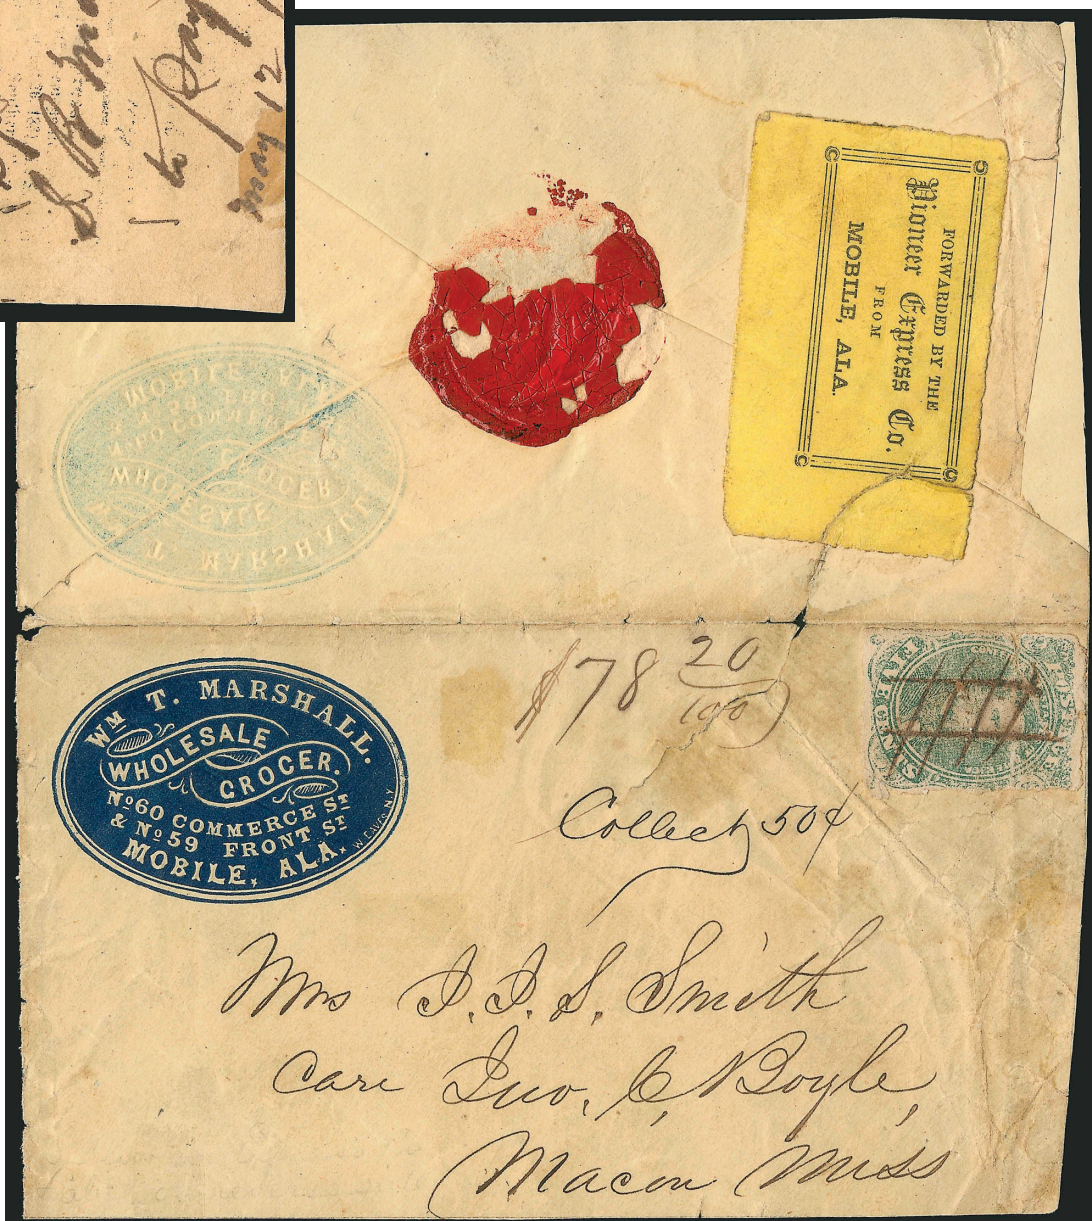 S. R.
to pay
may 12
FORWARDED BY THE
Pioneer Express Co.
FROM
MOBILE, ALA.
WM T. MARSHALL.
WHOLESALE
GROCER.
No 60 COMMERCE ST
& No 59 FRONT ST
MOBILE, ALA.
$78 20/100
Collect 50¢
Mrs J. J. S. Smith
Care Jno, C, Boyle,
Macon Miss
FIVE
CENTS